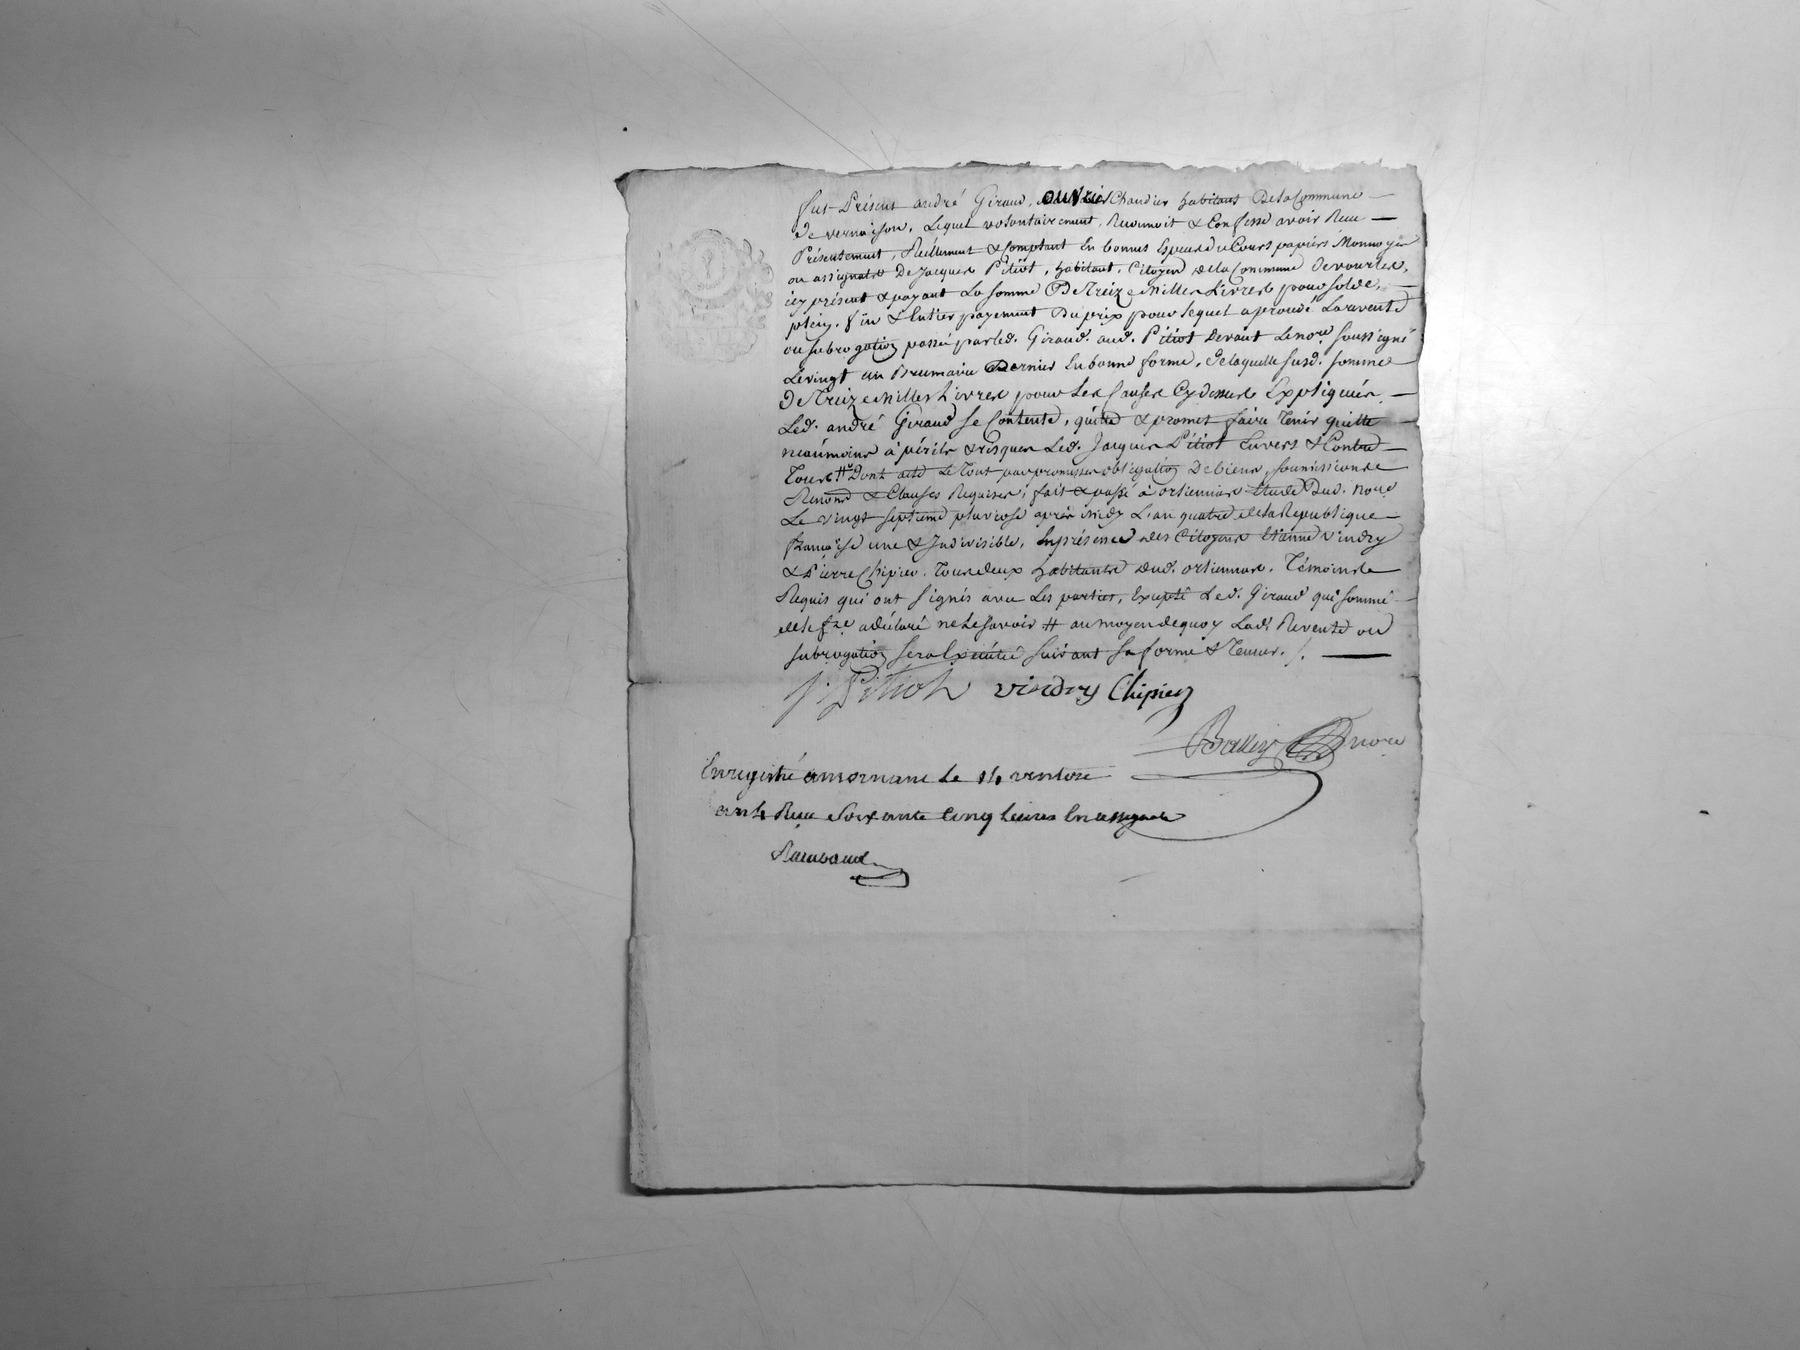 Fut Présent andré Giraud, ouvrier Chandier habitant De la Commune
De vernaison, Lequel volontairement, Reconnoit & Confesse avoir Receu
Présentement, Réellement & Comptant En bonnes Especes du Cours papiers Monnoyes
ou assignats De Jacques Pitiot, habitant, Citoyen de la Commune De vourles,
icy présent & payant La somme De Treize Milles Livres pour solde,
plein, fin & Entier payement Du prix pour lequel a procedé La revente
ou subrogation passée par led. Giraud. aud. Pitiot Devant Le nore. soussigné
Le vingt un Brumaire Dernier En bonne forme, De laquelle susd. somme
De Treize Milles Livres pour Les Causes Cy dessus Expliquées,
Led. andré Giraud se Contente, quitte & promet faire Tenir quitte
neáumoins à périls & risques Led. Jacques Pitiot Envers & Contre
Tous # Dont acte Le Tout par promesses obligation De biens, soumissions
Renond & Clauses Requises; fait & passé à orliennas Etude Dud. Nore
Le vingt septieme pluviose après midy L'an quatre de la Republique
française une & Indivisible, En présence des Citoyens Etienne Vindry
& Pierre Chipier. Tous deux habitants dud. orliennas. Témoins
Requis qui ont signés avec Les parties, Excepté Led. Giraud qui sommé
de le fre. a déclaré ne Le savoir # au moyen de quoy Lad. Revente ou
subrogation sera Exécutée suivant sa forme & Teneur. /.
J. Pitiot vindry Chipier
nore
Enregistré a mornant le 14 ventose
an 4 Reçu Soixante Cinq livres En assignats
Raimbaud